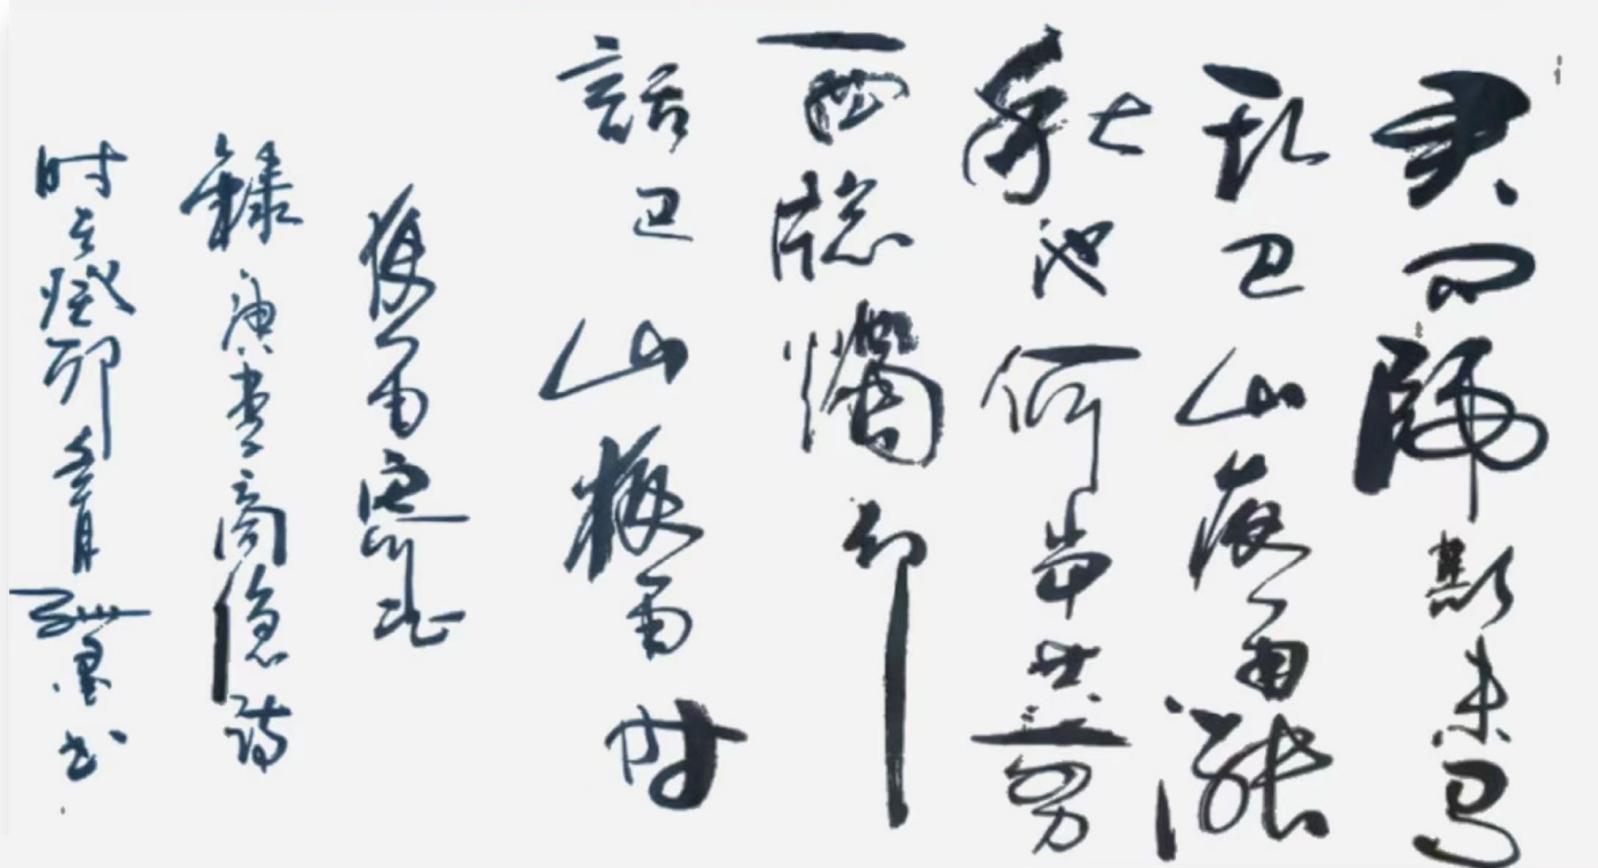 君问歸期未有
期巴山夜雨漲
秋池何當共剪
西牕燭却
話巴山夜雨时
夜雨寄北
錄唐李商隐诗
时在癸卯春月墨书